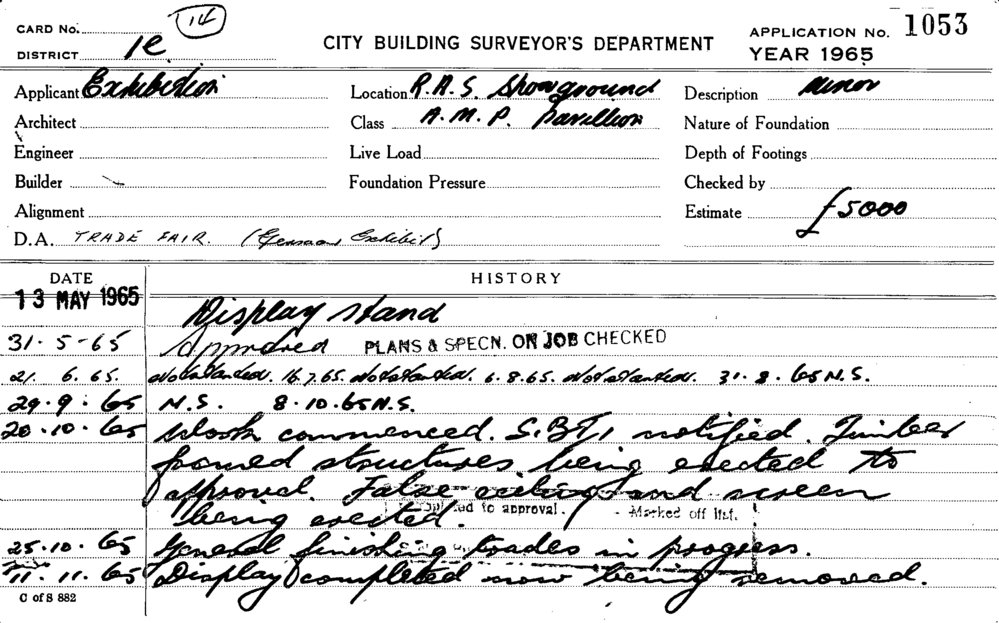 CARD No. 14
DISTRICT 1e
CITY BUILDING SURVEYOR'S DEPARTMENT
APPLICATION No. 1053
YEAR 1965
Applicant Exhibition
Location R.A.S. Showground
Description Minor
Architect
Class A.M.P. Pavillion
Nature of Foundation
Engineer
Live Load
Depth of Footings
Builder
Foundation Pressure
Checked by
Alignment
Estimate £5000
D.A. TRADE FAIR. (German Exhibit)
DATE
HISTORY
13 MAY 1965
Display stand
31-5-65 Approved PLANS & SPECN. ON JOB CHECKED
21. 6. 65. Not started. 16.7.65. Not started. 6.8.65. Not started. 31.8.65 N.S.
29.9.65 N.S. 8.10.65 N.S.
20.10.65 Work commenced. S.B.I. notified. Timber
framed structures being erected to
approval. False ceiling and screen
being erected.
to approval. - Marked off list.
25.10.65 General finishing trades in progress.
11.11.65 Display completed now being removed.
C of S 882